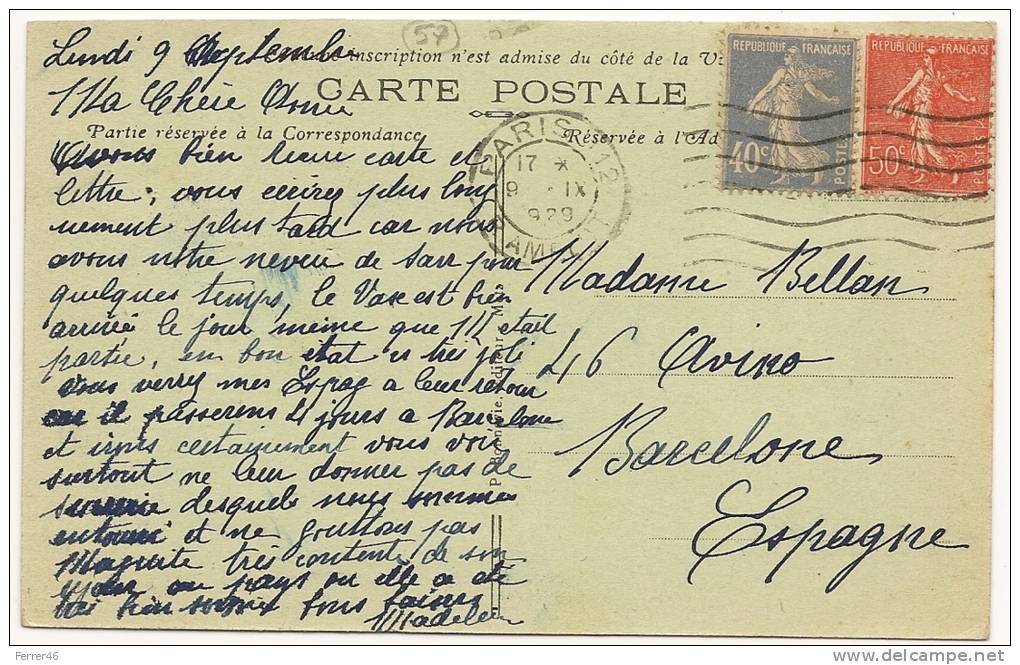 Lundi 9 Septembre
inscription n'est admise du côté de la V
CARTE POSTALE
Ma Chère
Partie réservée à la Correspondance
Réservée à l'Ad
Avons bien reçu carte et
lettre; vous écrirez plus lon
uement plus tard car nous
avons notre neveu de Sarr pour
quelques temps, le Vase est bien
arrivé le jour même que M etait
partie, en bon état et très joli
Vous verrez mes Espag a leur retour
car il passerons 4 jours a Barcelone
et irons certainement vous voir
surtout ne leur donner pas de
desquels nous sommes
entouré et ne gouttons pas
très contente de son
au pays ou elle a été
bien tous baisers
Madeleine
Madame Bellan
46 Avino
Barcelone
Espagne
REPUBLIQUE FRANÇAISE
40c
POSTES
REPUBLIQUE FRANÇAISE
50c
POSTES
PARIS 12
17 *
9 - IX
929
57
Ferrer46
delcampe.net